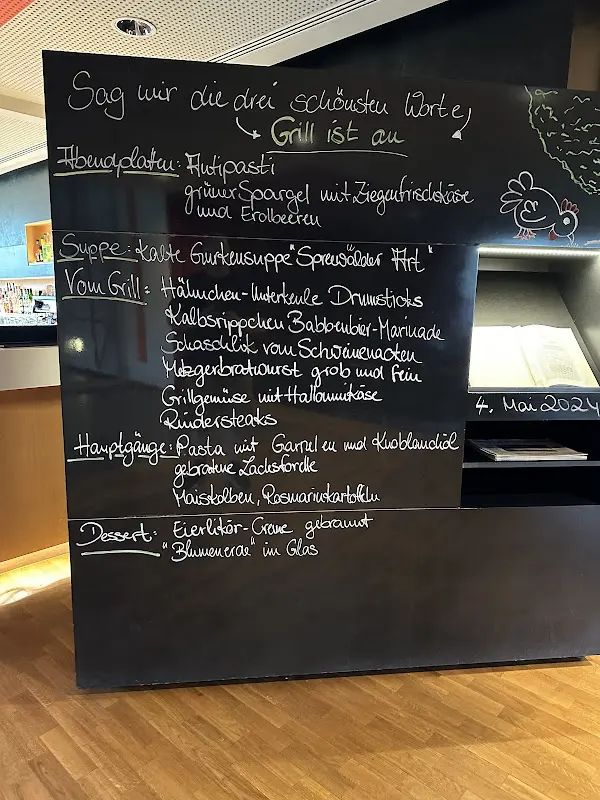 Sag mir die drei schönsten Worte,
Grill ist an
Abendplatten: Antipasti
grüner Spargel mit Ziegenfrischkäse
und Erdbeeren
Suppe: Kalte Gurkensuppe "Spreewälder Art"
Vom Grill: Hähnchen-Unterkeule Drumsticks
Kalbsrippchen Babbenbier-Marinade
Schaschlik vom Schweinenacken
Metzgerbratwurst grob und fein
Grillgemüse mit Halloumikäse
Rindersteaks
4. Mai 2024
Hauptgänge: Pasta mit Garnelen und Knoblauchöl
gebratene Lachsforelle
Maiskolben, Rosmarinkartoffeln
Dessert: Eierlikör-Creme gebrannt
"Blumenerde" im Glas